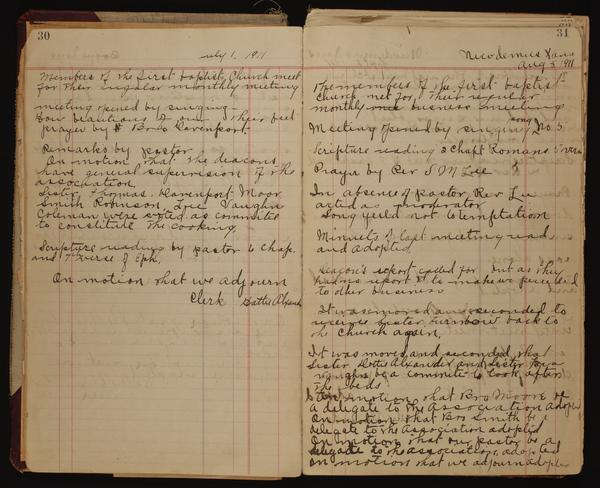 30
July 1, 1911
Members of the First baptist Church meet
for their regular monthly meeting
meeting opened by singing
how beautious
their feet
prayer by Bro Davenport
Remarks by pastor
On motion that the deacons
have general supervision of the
association
Sister Thomas, Davenport Moor
Smith Robinson, Vaughn
Coleman were voted as committe
to constitute the cooking.
Scripture reading by pastor 6 Chap.
and 7 verse of Eph.
On motion that we adjourn
Clerk Dattie Alexander
31
Nicodemus Kans
Aug 5 1911
The members of the first baptist
church met for their regular
monthly business meeting
Meeting opened by singing song No 5
Scripture reading 3 Chapt Romans 5 verse
Prayer by Rev S M Lee
In absence of pastor Rev Lee
acted as moderator
Song yeild not to temptation
Minuets of last meeting read
and adopted
report called for but as they
had no report to make we proceeded
to other business
It was moved and seconded to
receive Sister Turnbow back to
the Church again.
It was moved and seconded that
Sister Dattie Alexander and Sister
Vaughn be a committe to look after
the beds
On motion that Bro Moore be
a delegate to the Association adopted
On motion that Bro Smith be a
delegate to the Association adopted
On motion that our pastor be a
delegate to the association, adopted
On motion that we adjourn adopted